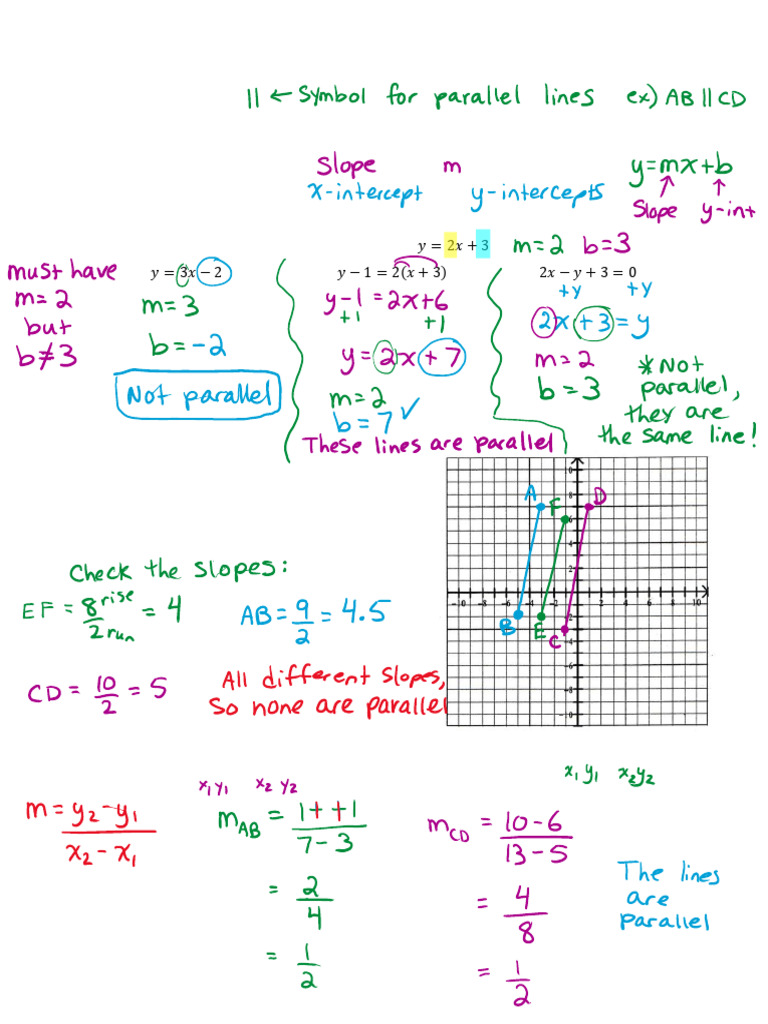 || ← Symbol for parallel lines ex) AB || CD
Slope m y=mx+b
x-intercept y-intercepts
Slope y-int
y = 2x + 3 m=2 b=3
must have
m=2
but
b≠3
y = 3x − 2
m=3
b=-2
Not parallel
y − 1 = 2(x + 3)
y-1 = 2x+6
+1 +1
y=2x+7
m=2
b=7 ✓
These lines are parallel
2x − y + 3 = 0
+y +y
2x+3=y
m=2
b=3
*Not
parallel,
they are
the same line!
Check the slopes:
EF = 8 rise / 2 run = 4
AB = 9/2 = 4.5
CD = 10/2 = 5
All different slopes,
So none are parallel
A F D
B E C
8
6
4
2
-10 -8 -6 -4 -2 2 4 6 8 10
-2
-4
-6
-8
m = y₂-y₁ / x₂-x₁
x₁ y₁ x₂ y₂
m_AB = 1++1 / 7-3
= 2/4
= 1/2
x₁ y₁ x₂ y₂
m_CD = 10-6 / 13-5
= 4/8
= 1/2
The lines
are
parallel